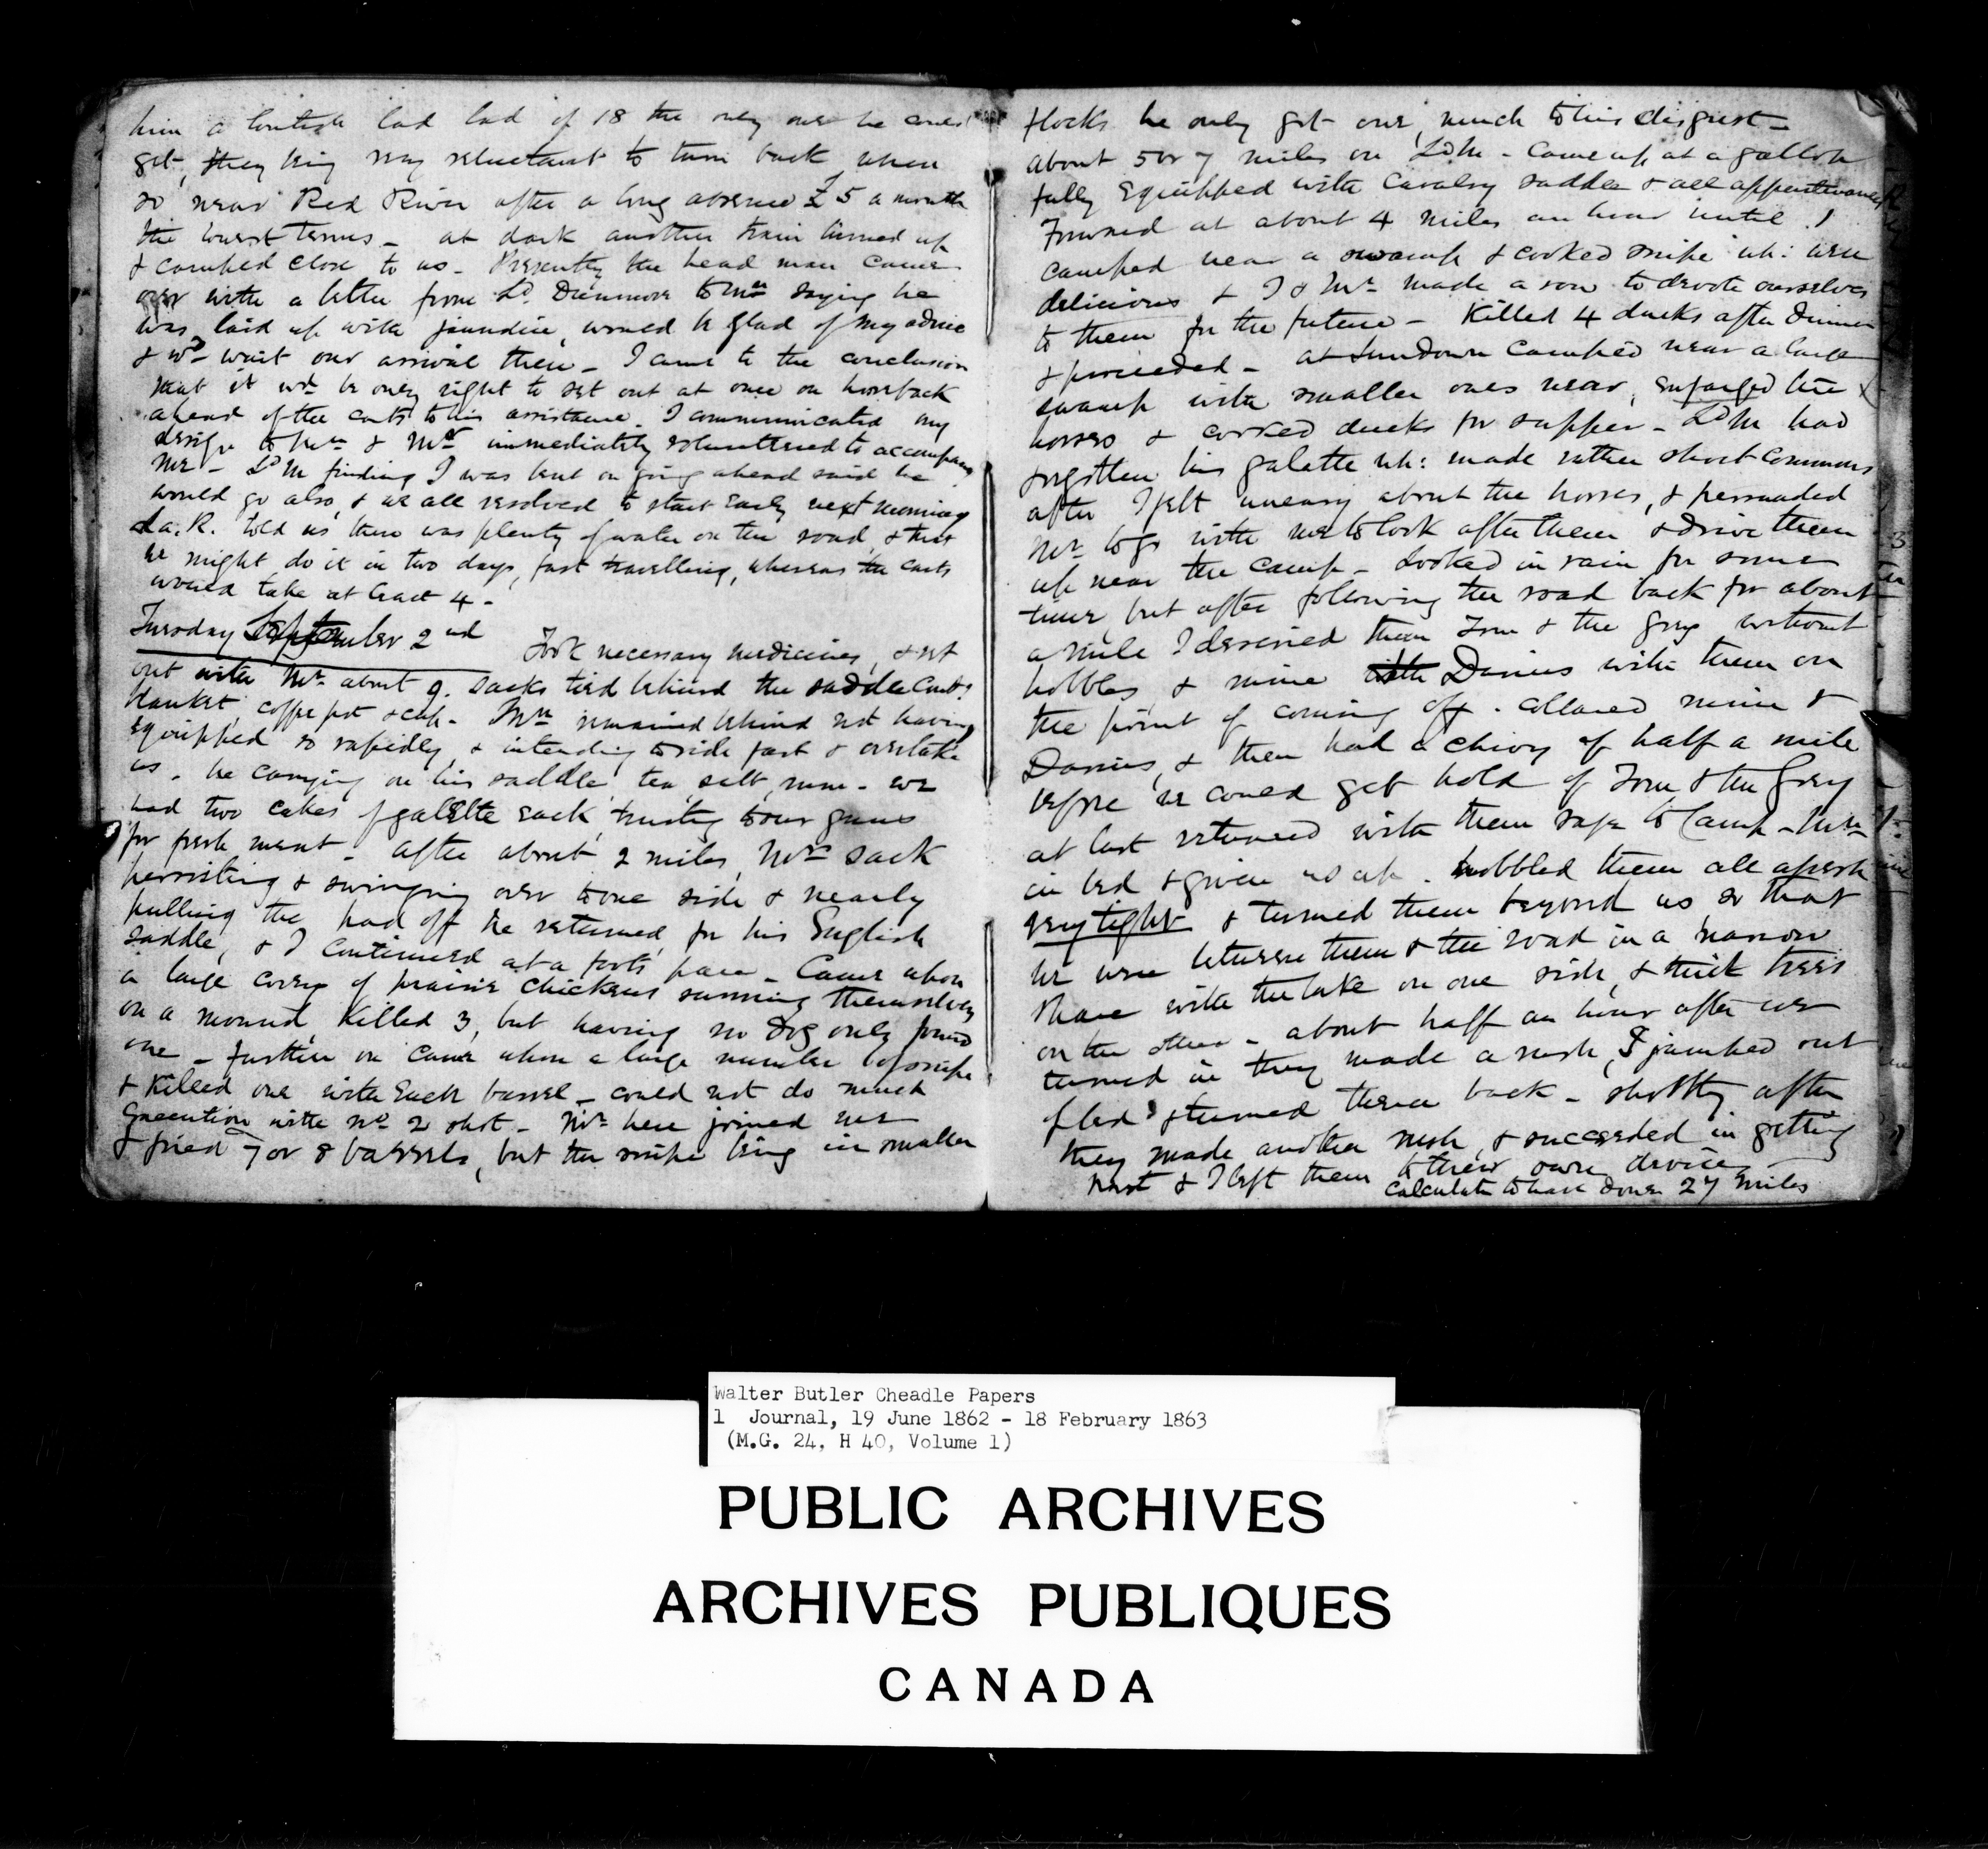 him a loutish lad lad of 18 the only one he could
get, they being very reluctant to turn back when
so near Red River after a long absence £5 a month
the lowest terms - at dark another train turned up
& camped close to us - Presently the head man came
over with a letter from Ld. Dunmore to Mn saying he
was laid up with jaundice, would be glad of my advice
& wd wait our arrival there - I came to the conclusion
that it wd be only right to set out at once on horseback
ahead of the carts to his assistance. I communicated my
design to & immediately volunteered to accompany
me - Ld M finding I was bent on going ahead said he
would go also, & we all resolved to start early next morning
La. R. told us there was plenty of water on the road, & that
we might do it in two days, fast travelling, whereas the carts
would take at least 4 -
Tuesday September 2nd Took necessary medicines, & set
out with Mr about 9. sacks tied behind the saddle
blanket, coffee pot & cup - remained behind not having
equipped so rapidly, & intending to ride fast & overtake
us. he carrying on his saddle tea, salt, - we
had two cakes of galette each, trusting to our guns
for fresh meat - After about 2 miles, sack
persisting & swinging over to one side & nearly
pulling the pad off he returned for his English
saddle, & I continued at a foot's pace - Came upon
a large covey of prairie chickens sunning themselves
on a mound, killed 3, but having no dog only found
one - further on came upon a large number of snipe
& killed one with each barrel - could not do much
execution with No 2 shot - here joined me
& fired 7 or 8 barrels, but the snipe being in smaller
flocks he only got one, much to his disgust -
about 5 or 7 miles on Ld M - came up at a gallop
fully equipped with cavalry saddle & all appurtenances
Journed at about 4 miles an hour until 1
camped near a swamp & cooked snipe wh: were
delicious & I & made a vow to devote ourselves
to them for the future - Killed 4 ducks after dinner
& proceeded - at sundown camped near a large
swamp with smaller ones near, enfarged the
horses & cooked ducks for supper - Ld M had
forgotten his galette wh: made rather short commons
after I felt uneasy about the horses, & persuaded
to go with me to look after them & drive them
up near the camp - Looked in vain for some
time but after following the road back for about
a mile I descried them Tom & the Grey without
hobbles, & mine Darius with them on
the point of coming off. collared mine &
Darius, & then had a chivy of half a mile
before we could get hold of Tom & the Grey
at last returned with them safe to Camp -
in bed & given us up. hobbled them all afresh
very tight & turned them beyond us so that
we were between them & the road in a narrow
place with the lake on one side, & thick trees
on the other - about half an hour after we
turned in they made a rush, I jumped out
of bed & turned them back - shortly after
they made another rush, & succeeded in getting
past & I left them to their own devices
calculate to have done 27 miles
Walter Butler Cheadle Papers
1 Journal, 19 June 1862 - 18 February 1863
(M.G. 24, H 40, Volume 1)
PUBLIC ARCHIVES
ARCHIVES PUBLIQUES
CANADA